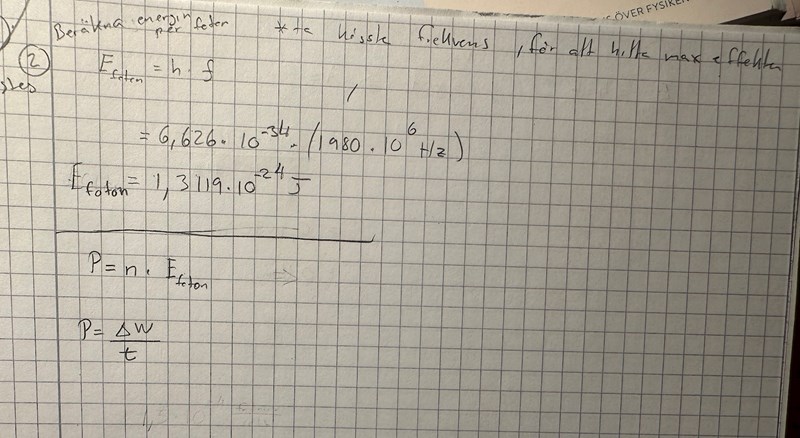 ÖVER FYSIKEN
Beräkna energin per foton * ta högsta frekvens, för att hitta max effekten
2
E foton = h · f
= 6,626 · 10^-34 · (1980 · 10^6 Hz)
E foton = 1,3119 · 10^-24 J
P = n · E foton ⇒
P = ΔW / t